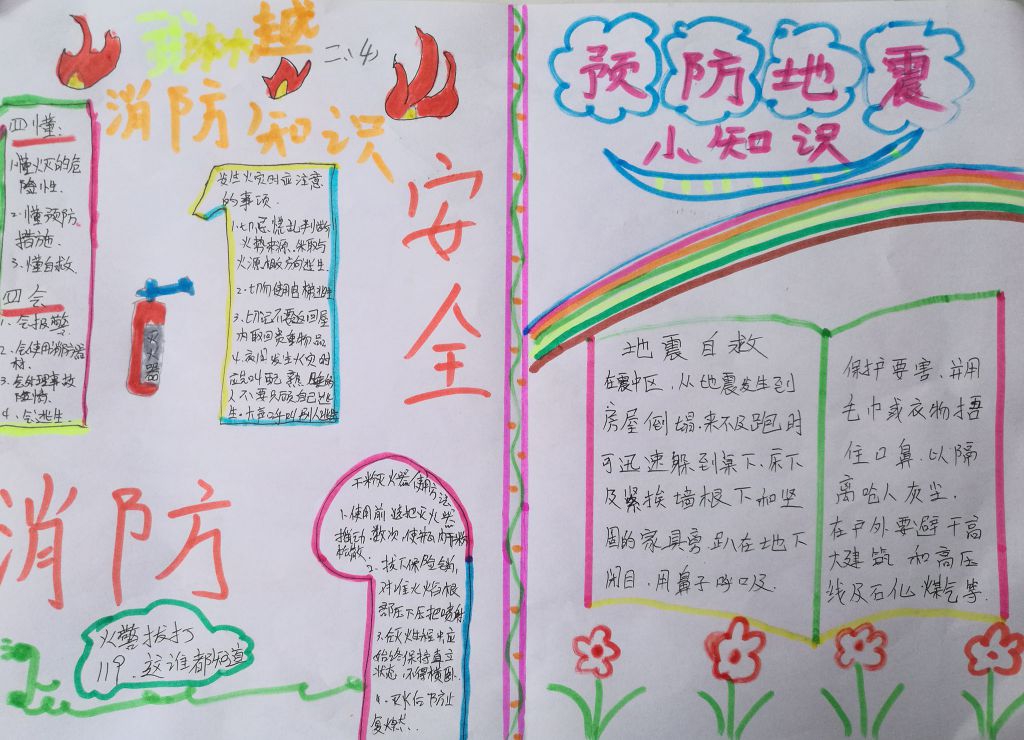 越
二、4)
消防知识
四懂:
1.懂火灾的危
险性.
2.懂预防
措施.
3.懂自救.
四会
1.会报警
2.会使用消防器
材.
3.会处理事故
险情.
4.会逃生.
灭火器
发生火灾时应注意
的事项.
1.切忌慌乱,判断
火势来源,采取与
火源相反方向逃生.
2.切勿使用电梯逃生
3.切记不要返回屋
内取回贵重物品
4.夜间发生火灾时
应叫醒熟睡的
人不要只顾自己逃
生.大声呼叫别人逃生
安全
消防
火警拔打
119.这谁都知道
干粉灭火器使用方法
1.使用前,先把灭火器
摇动数次,使瓶内干粉
松散.
2.拔下保险销,
对准火焰根
部压下压把喷射
3.在灭火过程中应
始终保持直立
状态,不得横卧.
4.灭火后防止
复燃.
预防地震
小知识
地震自救
在震中区,从地震发生到
房屋倒塌,来不及跑时
可迅速躲到桌下.床下
及紧挨墙根下和坚
固的家具旁,趴在地下
闭目,用鼻子呼吸.
保护要害,并用
毛巾或衣物捂
住口鼻,以隔
离呛人灰尘.
在户外要避干高
大建筑和高压
线及石化煤气等.